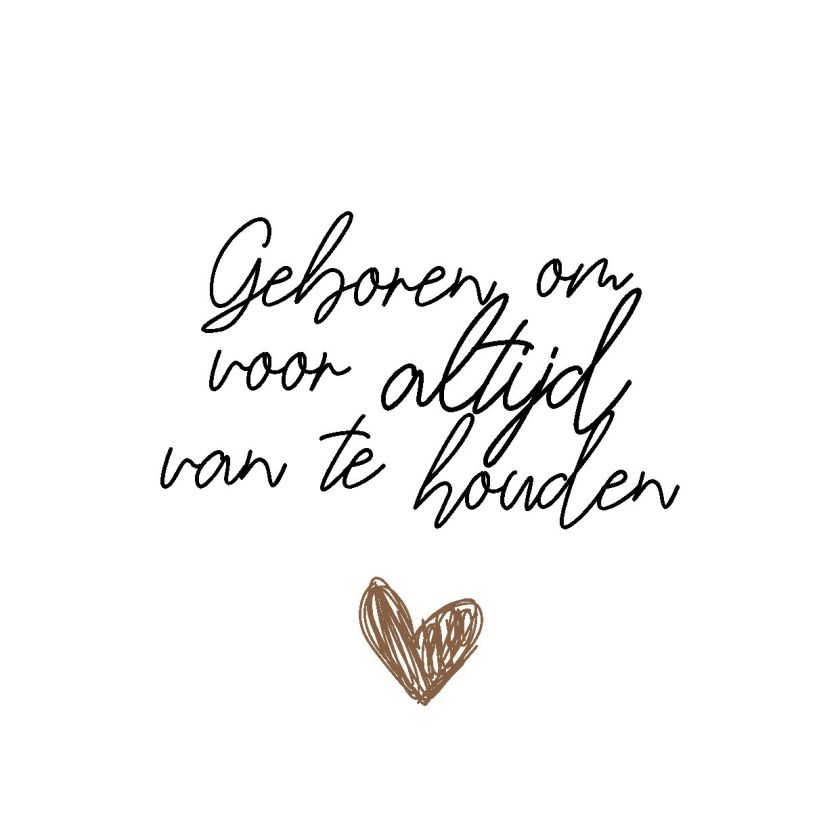 Geboren om
voor altijd
van te houden